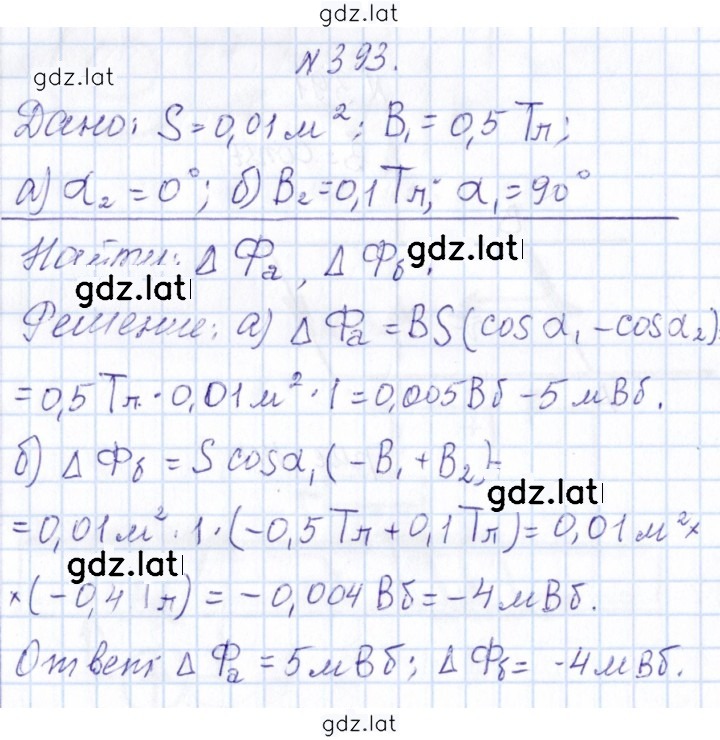 gdz.lat
N 393.
gdz.lat
Дано: S = 0,01 м²; B₁ = 0,5 Тл;
а) α₂ = 0°; б) B₂ = 0,1 Тл; α₁ = 90°
Найти: Δ Фₐ, Δ Фб.
gdz.lat
gdz.lat
Решение: а) Δ Фₐ = BS(cos α₁ - cos α₂)
= 0,5 Тл · 0,01 м² · 1 = 0,005 Вб - 5 мВб.
б) Δ Фб = S cos α₁ (- B₁ + B₂) =
gdz.lat
= 0,01 м² · 1 · (-0,5 Тл + 0,1 Тл) = 0,01 м² ×
gdz.lat
× (-0,4 Тл) = -0,004 Вб = -4 мВб.
Ответ: Δ Фₐ = 5 мВб; Δ Фб = -4 мВб.
gdz.lat